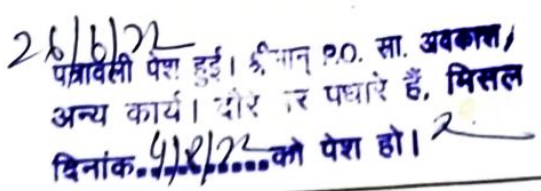 26/6/22
पत्रावली पेश हुई। श्रीमान् P.O. सा. अवकाश/
अन्य कार्य। दौरे पर पधारे हैं, मिसल
दिनांक.4/8/22.को पेश हो।